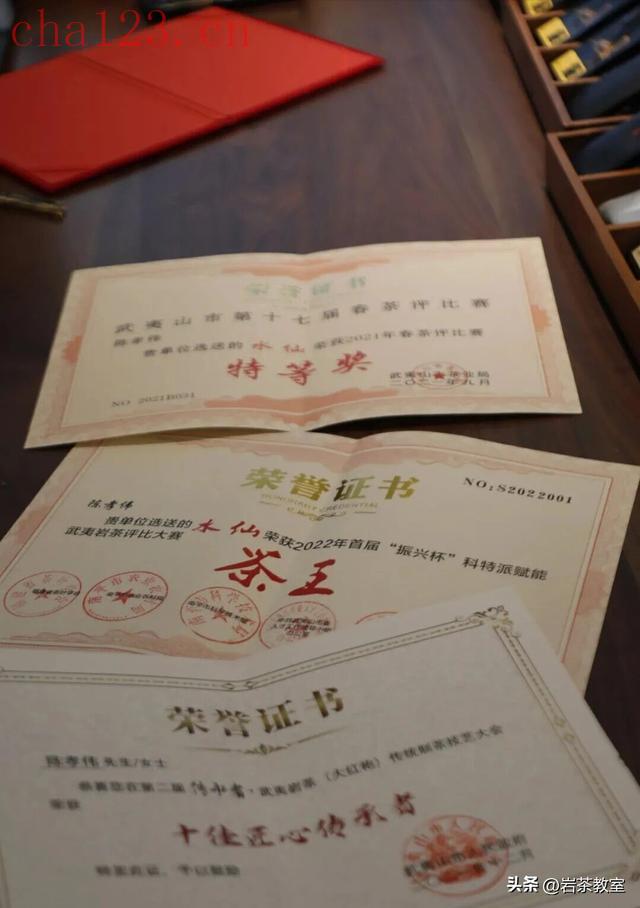 cha123.cn
荣誉证书
武夷山市第十七届春茶评比赛
陈孝伟
贵单位选送的水仙荣获2021年春茶评比赛
特等奖
武夷山市茶业局
二〇二一年九月
NO 2021B031
荣誉证书
HONORARY CREDENTIAL
NO:S2022001
陈孝伟
贵单位选送的水仙荣获2022年首届“振兴杯”科特派赋能
武夷岩茶评比大赛
茶王
荣誉证书
陈孝伟先生/女士
恭喜您在第二届传承者·武夷岩茶（大红袍）传统制茶技艺大会
荣获
十佳匠心传承者
特发此证，予以鼓励
武夷山市人民政府
头条 @岩茶教室